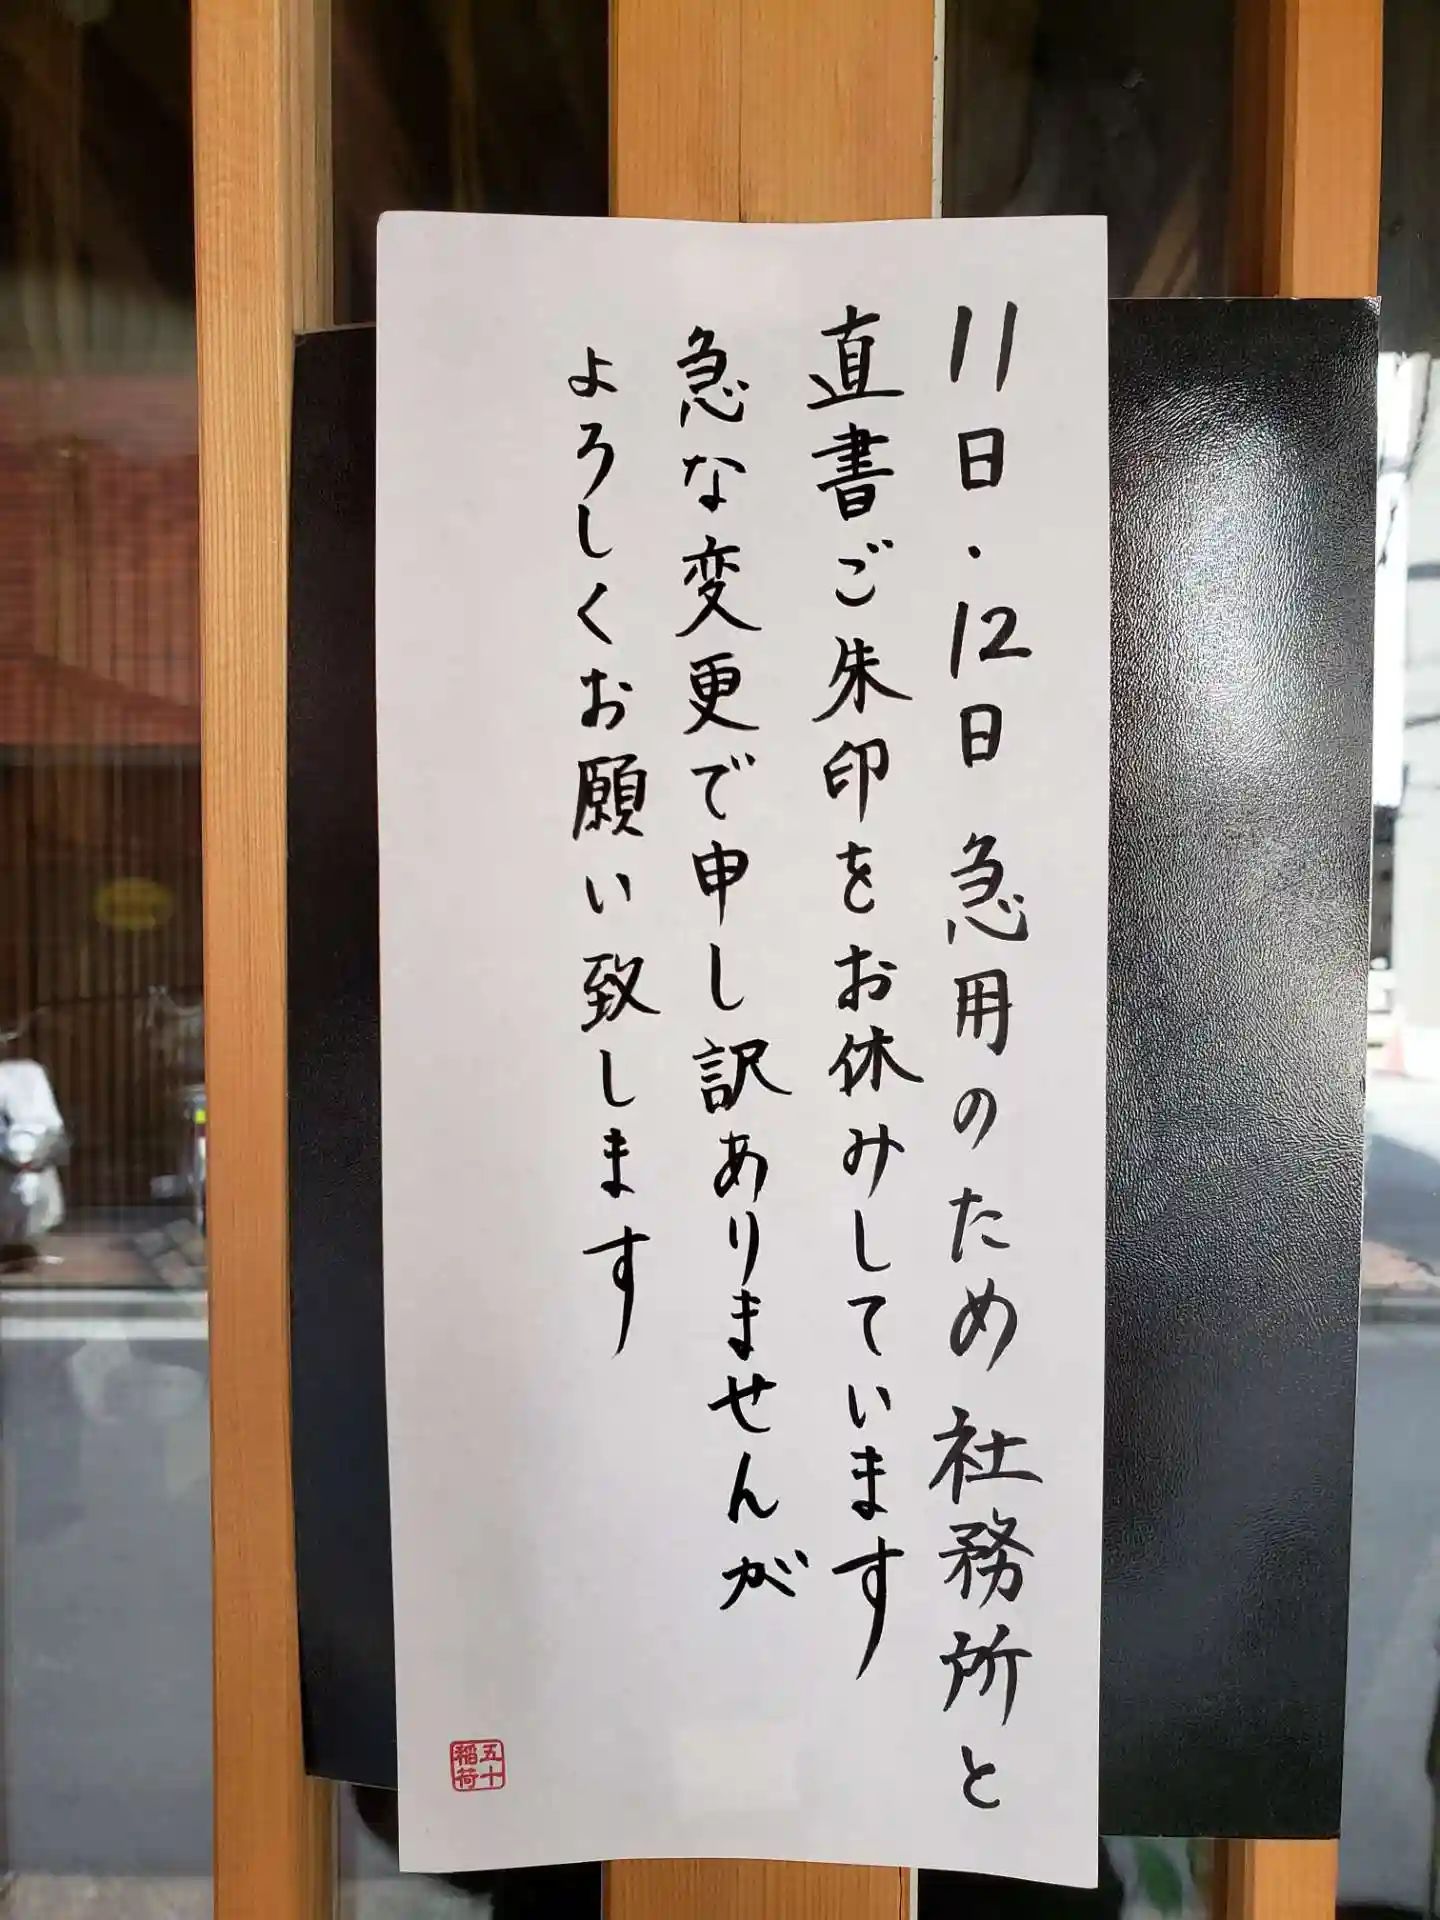 11日・12日 急用のため 社務所と
直書ご朱印をお休みしています
急な変更で申し訳ありませんが
よろしくお願い致します
五十
稲荷